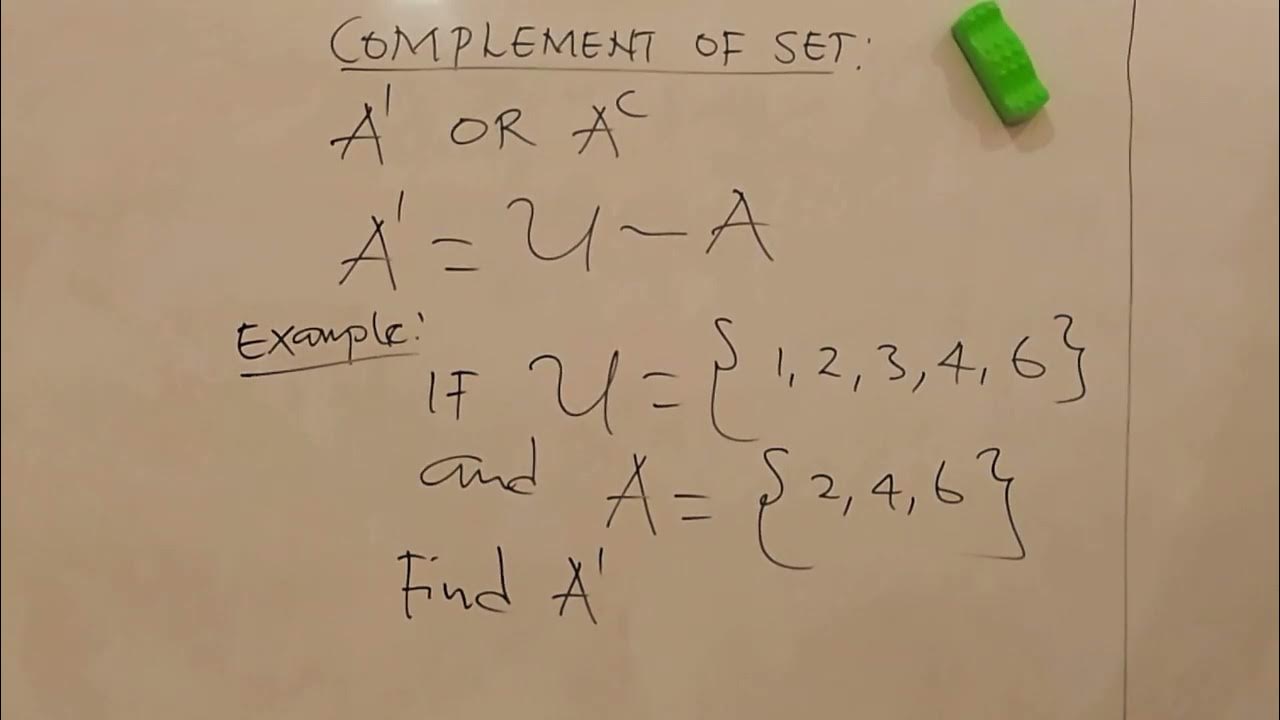 COMPLEMENT OF SET:
A' OR Aᶜ
A' = U - A
Example:
IF U = {1, 2, 3, 4, 6}
and A = {2, 4, 6}
Find A'